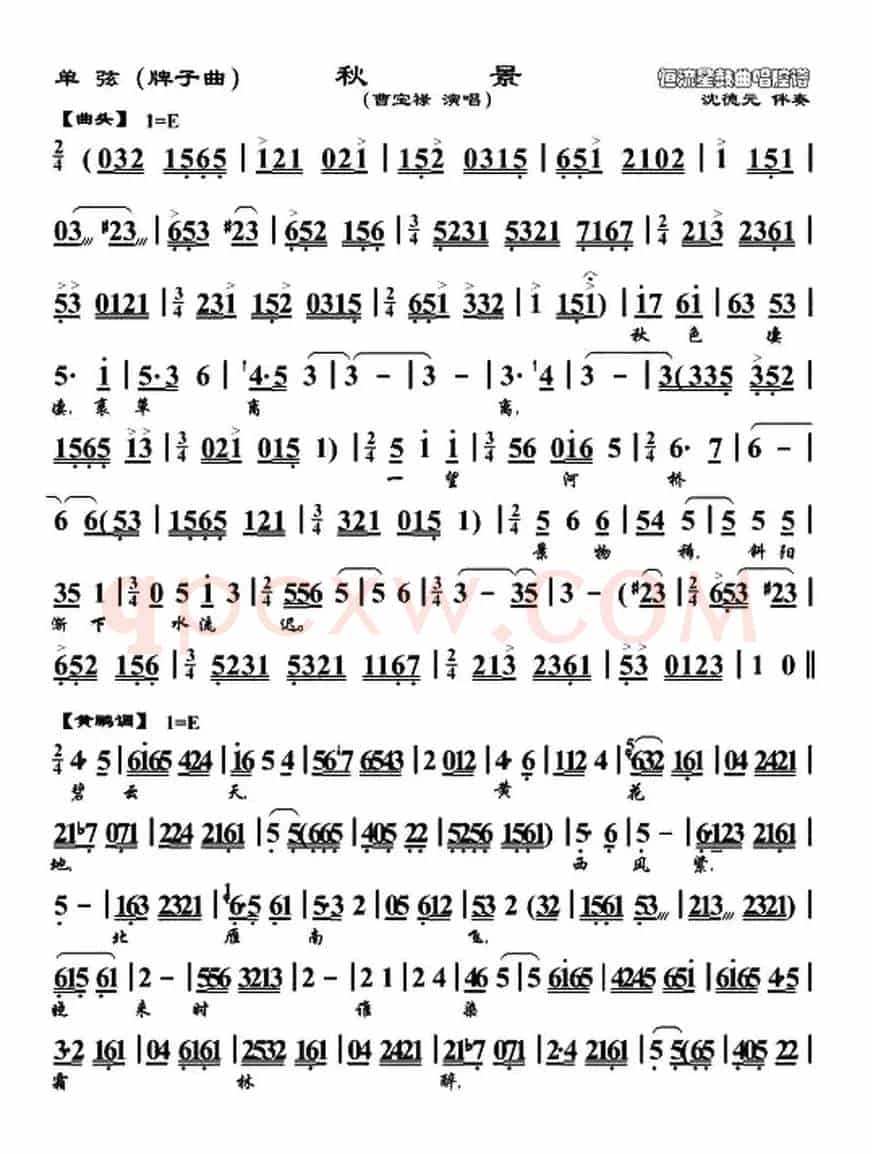 单 弦 (牌子曲) 秋 景 恒流星鼓曲唱腔谱
(曹宝禄 演唱) 沈德元 伴奏
【曲头】 1=E
2/4 (032 1565 | i21 02i | 152 0315 | 651 2102 | i 151 |
03 #23 | 653 #23 | 652 156 | 3/4 5231 5321 7167 | 2/4 213 2361 |
53 0121 | 3/4 231 152 0315 | 2/4 651 332 | i 151) | i7 6i | 63 53 |
秋 色 凄
5· i | 5·3 6 | 4·5 3 | 3 - | 3 - | 3· 4 | 3 - | 3(335 352 |
凄, 衰 草 离 离,
1565 13 | 3/4 021 015 1) | 2/4 5 i i | 3/4 56 0i6 5 | 2/4 6· 7 | 6 - |
一 望 河 桥
6 6(53 | 1565 121 | 3/4 321 015 1) | 2/4 5 6 6 | 54 5 | 5 5 5 |
景 物 稀, 斜 阳
35 1 | 3/4 0 5 i 3 | 2/4 556 5 | 5 6 | 3/4 3 - 35 | 3 - (#23 | 2/4 653 #23 |
渐 下 水 流 迟。
652 156 | 3/4 5231 5321 1167 | 2/4 213 2361 | 53 0123 | 1 0 ‖
【黄鹂调】 1=E
2/4 4· 5 | 6i65 424 | i6 5 4 | 567 6543 | 2 012 | 4· 6 | 112 4 | 5632 161 | 04 2421 |
碧 云 天, 黄 花
21b7 071 | 224 2161 | 5 5(665 | 405 22 | 5256 1561) | 5· 6 | 5 - | 6·123 2161 |
地, 西 风 紧,
5 - | 163 2321 | 6·5 61 | 5·3 2 | 05 612 | 53 2 (32 | 1561 53 | 213 2321) |
北 雁 南 飞,
615 61 | 2 - | 556 3213 | 2 - | 2 1 | 2 4 | 46 5 | 5 6i65 | 4245 65i | 6i65 4·5 |
晓 来 时 谁 染
3·2 161 | 04 6161 | 2532 161 | 04 2421 | 21b7 071 | 2·4 2161 | 5 5(65 | 405 22 |
霜 林 醉,
qpcxw.com